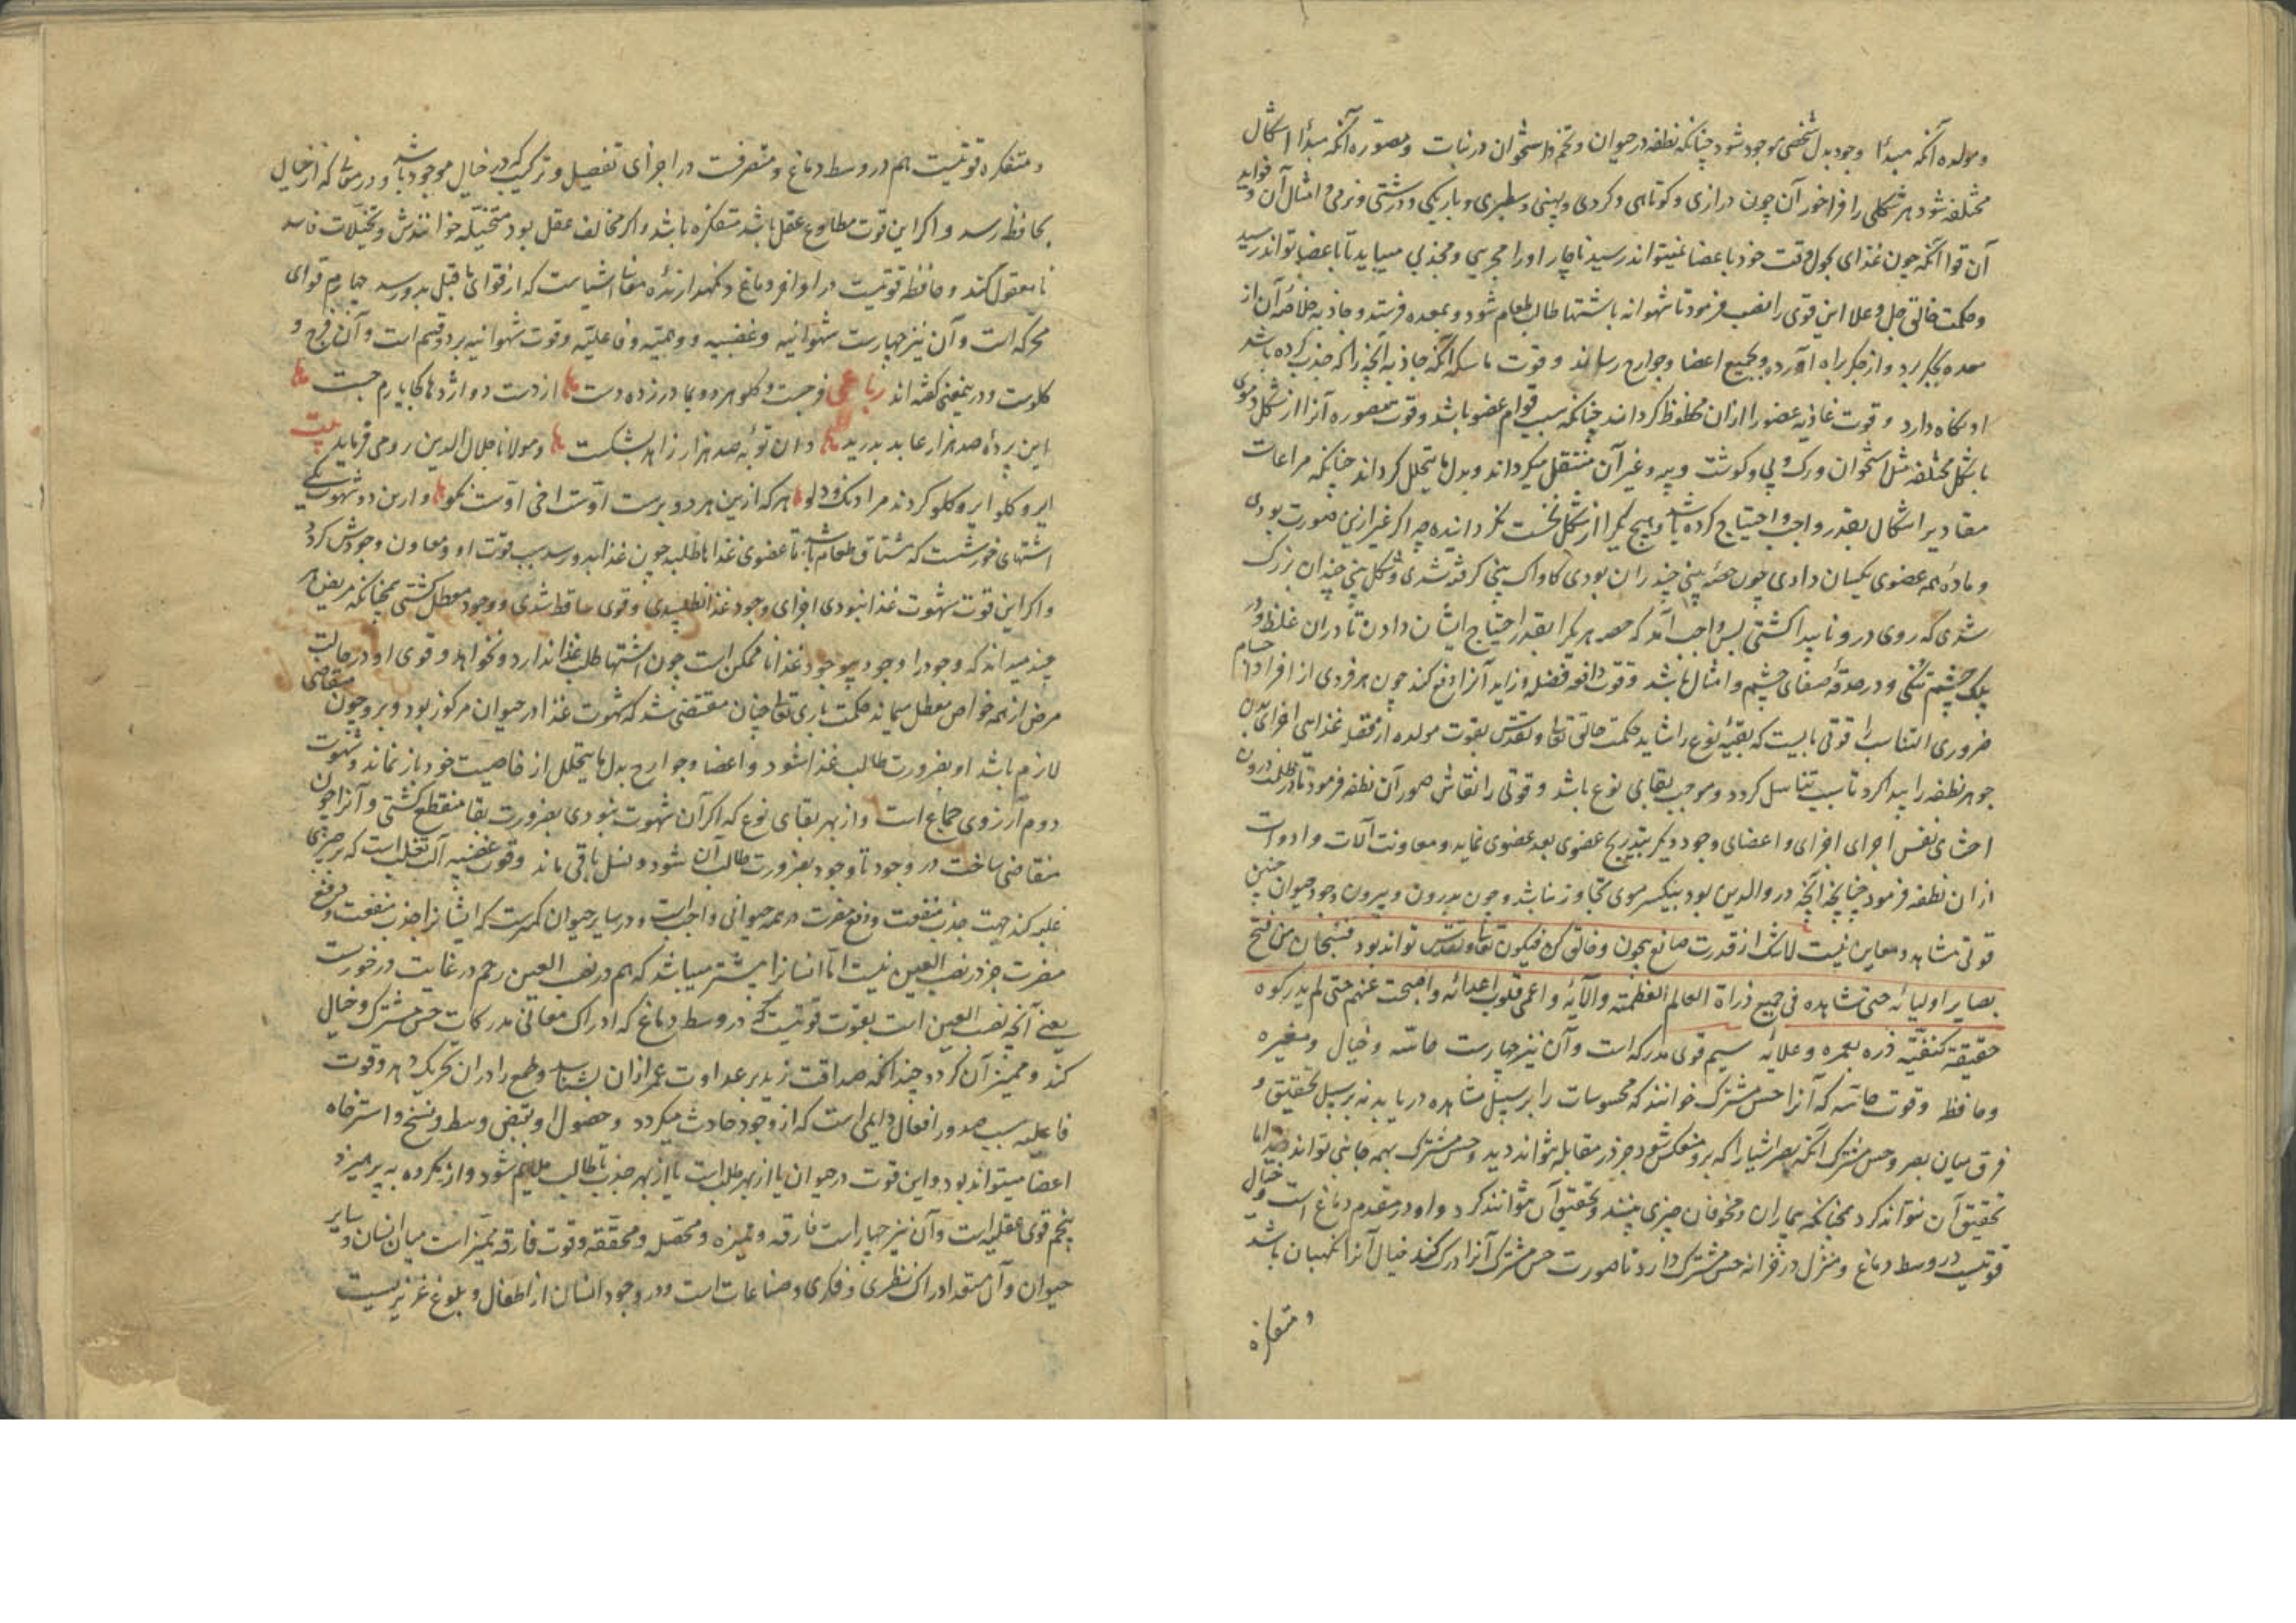 ومولده آنکه مبدأ وجود بدل شخصی موجود شود چنانکه نطفه در حیوان و تخم و استخوان در نبات ومصوره آنکه مبدأ اشکال
مختلفه شود هر شکلی را فراخور آن چون درازی و کوتاهی و کردی و پهنی و سطبری و باریکی و درشتی و نرمی و امثال آن و فواید
آن قوا آنکه چون غذای بخود خود باعضا نمیتواند رسید ناچار او را مجربی ومجذبی میباید تا باعضا تواند رسید
وحکمت خالق جل وعلا این قوی را نصب فرمود تا شهوانه باشتها طالب طعام شود و بمعده فرستد و جاذبه خلاصۀ آن از
معده بجکر برد و از جکر براه آورده بجمیع اعضا و جوارح رساند و قوت ماسکه آنکه جاذبه آنچه را که جذب کرده باشد
او نکاه دارد و قوت غاذیه عضو را ازان محظوظ کرداند چنانکه سبب قوام عضو باشد وقوت مصوره آنرا از شکل دموی
باشکال مختلفه مثل استخوان ورک و پی وکوشت و پیه و غیر آن منتقل میکرداند و بدل ما یتحلل کرداند چنانکه مراعات
مقادیر اشکال بقدر واجب و احتیاج کرده باشد و هیچ یکرا از شکل نخست نکردانیده چه اکر غیر ازین صورت بودی
و مادۀ همه عضوی یکسان دادی چون حصۀ بینی چند ران بودی کاواک بینی کرفته شدی و شکل بینی چندان بزرک
شدی که روی درو ناپیدا کشتی پس واجب آمد که حصه هر یکرا بقدر احتیاج ایشان دادن تا در ران غلظ و در
پلک چشم تنکی و در حدقه صفای چشم و امثال باشد و قوت دافعه فضله و زاید آنرا دفع کند چون هر فردی از افراد اجسام
ضروری التناسب را قوتی بایست که بقیۀ نوع را شاید حکمت خالق تعالی وتقدس بقوت مولده از فضله غذا هی اجزای بدن
جوهر نطفه را پیدا کرد تا سبب تناسل کردد وموجب بقای نوع باشد و قوتی را نقاش صور آن نطفه فرمود تا در ظلمت درون
احشای نفس اجرای اجزای و اعضای وجود دیکر بتدریج عضوی بعد عضوی نماید و معاونت آلات وادوات
ازان نطفه فرمود چنانچه آنچه در والدین بود بیکسر موی تجاوز نباشد و چون بدرون و بیرون وجود حیوان چنین
قوتی مشاهد ومعاین نیست لاشک از قدرت صانع بیچون وخالق کن فیکون تعالی وتقدس تواند بود فسبحان من فتح
بصایر اولیائه حتی تشاهده فی جمیع ذراة العالم العظمته والآئه واعمی قلوب اعدائه واضحت عنهم حتی لم یدرکوه
حقیقة کنفیة ذره بعمره وعلائه سیم قوی مدرکه است وآن نیز چهارست حاسه وخیال ومغیره
وحافظ وقوت حاسه که آنرا حس مشترک خوانند که محسوسات را بر سبیل مشاهده دریابد نه بر سبیل تحقیق و
فرق میان بصر وحس مشترک آنکه بصر اشیا را که برو منعکس شود جز در مقابله نتواند دید وحس مشترک بهمه جانبی تواند دید اما
تحقیق آن نتواند کرد همچنانکه بیماران ومخوفان چیزی بینند وتحقیق آن نتوانند کرد و او در مقدم دماغ است وخیال
قوتیست در وسط دماغ ومنزل در خزانه حس مشترک دارد تا صورت حس مشترک آنرا درک کند خیال آنرا نکهبان باشد
ومتفکره
ومتفکره قوتیست هم در وسط دماغ ومتصرفست در اجزای تفصیل و ترکیب که در خیال موجود باشد و در معانی که از خیال
بحافظه رسد و اکر این قوت مطاوع عقل باشد متفکره باشد واکر مخالف عقل بود متخیله خوانندش وتخیلات فاسد
نامعقول کند وحافظه قوتیست در اواخر دماغ ونکهدارندۀ معانی اشیاست که از قوای ماقبل بدو رسد چهارم قوای
محرکه است وآن نیز چهارست شهوانیه وغضبیه ووهمیه وفاعلیه وقوت شهوانیه بر دو قسم است وآن فرج و
کلوست و درینمعنی کفته اند رباعی فرجست و کلو هر دو بما در زده دست از دست دو اژدها کجا یارم جست
این پردۀ صد هزار عابد بدرید وان توبۀ صد هزار زاهد بشکست ومولانا جلال الدین رومی فرماید بیت
ایر وکلو ایر وکلو کردند مرا دنک ودلو هر که ازین هر دو برست اوست اخی اوست نکو وازین دو شهوت یکی
اشتهای خورشست که مشتاق طعام باشد تا عضوی غذا ما طلبد چون غذا بدو رسد سبب قوت او ومعاون وجودش کردد
واکر این قوت شهوت غذا نبودی اجزای وجود غذا نطلبیدی وقوی ساقط شدی ووجود معطل کشتی همچنانکه مریض هر
چند میداند که وجود را وجود بی وجود غذا ناممکن است چون اشتها طلب غذا ندارد ونخواهد وقوی او در حالت
مرض از همه خواص معطل میماند حکمت باری تعالی چنان مقتضی شد که شهوت غذا در حیوان مرکوز بود وبر وجود متقاضی
لازم باشد او بضرورت طالب غذا شود واعضا وجوارح بدل ما یتحلل از خاصیت خود باز نماند وشهوت
دوم آرزوی جماع است واز بهر بقای نوع که اکر آن شهوت نبودی بضرورت بقا منقطع کشتی وآنرا چون
متقاضی ساخت در وجود تا وجود بضرورت طالب آن شود ونسل باقی ماند وقوت غضبیه آلت تغلب است که بر چیزی
غلبه کند جهت جذب منفعت ودفع مضرت در همه حیوانی واجب است ودر سایر حیوان کمترست که ایشانرا جذب منفعت ودفع
مضرت جز در نصب العین نیست اما انسانرا بیشتر میباشد که هم در نصب العین و هم در غایت درخورست
یعنی آنچه نصب العین است بقوت قوتیست که در وسط دماغ که ادراک معانی مدرکات حس مشترک وخیال
کند وممیز آن کردد چنانکه صداقت زید بر عداوت عمر ازان بشناسد وطمع را دران تحریک دهد وقوت
فاعلیه سبب صدور افعال دایمی است که از وجود حادث میکردد وحصول او بقبض وبسط ونسخ واسترخاه
اعضا میتواند بود واین قوت در حیوان یا از بهر طلب است یا از بهر جذب تا طالب ملایم شود واز مکروه بپرهیزد
پنجم قوی عقلیه است وآن نیز چهار است فارقه وممیزه ومحصله ومحققه وقوت فارقه ممیز است میان انسان وسایر
حیوان وآن مستعد ادراک نظری وفکری وصناعات است ودر وجود انسان از اطفال وبلوغ غریزیست